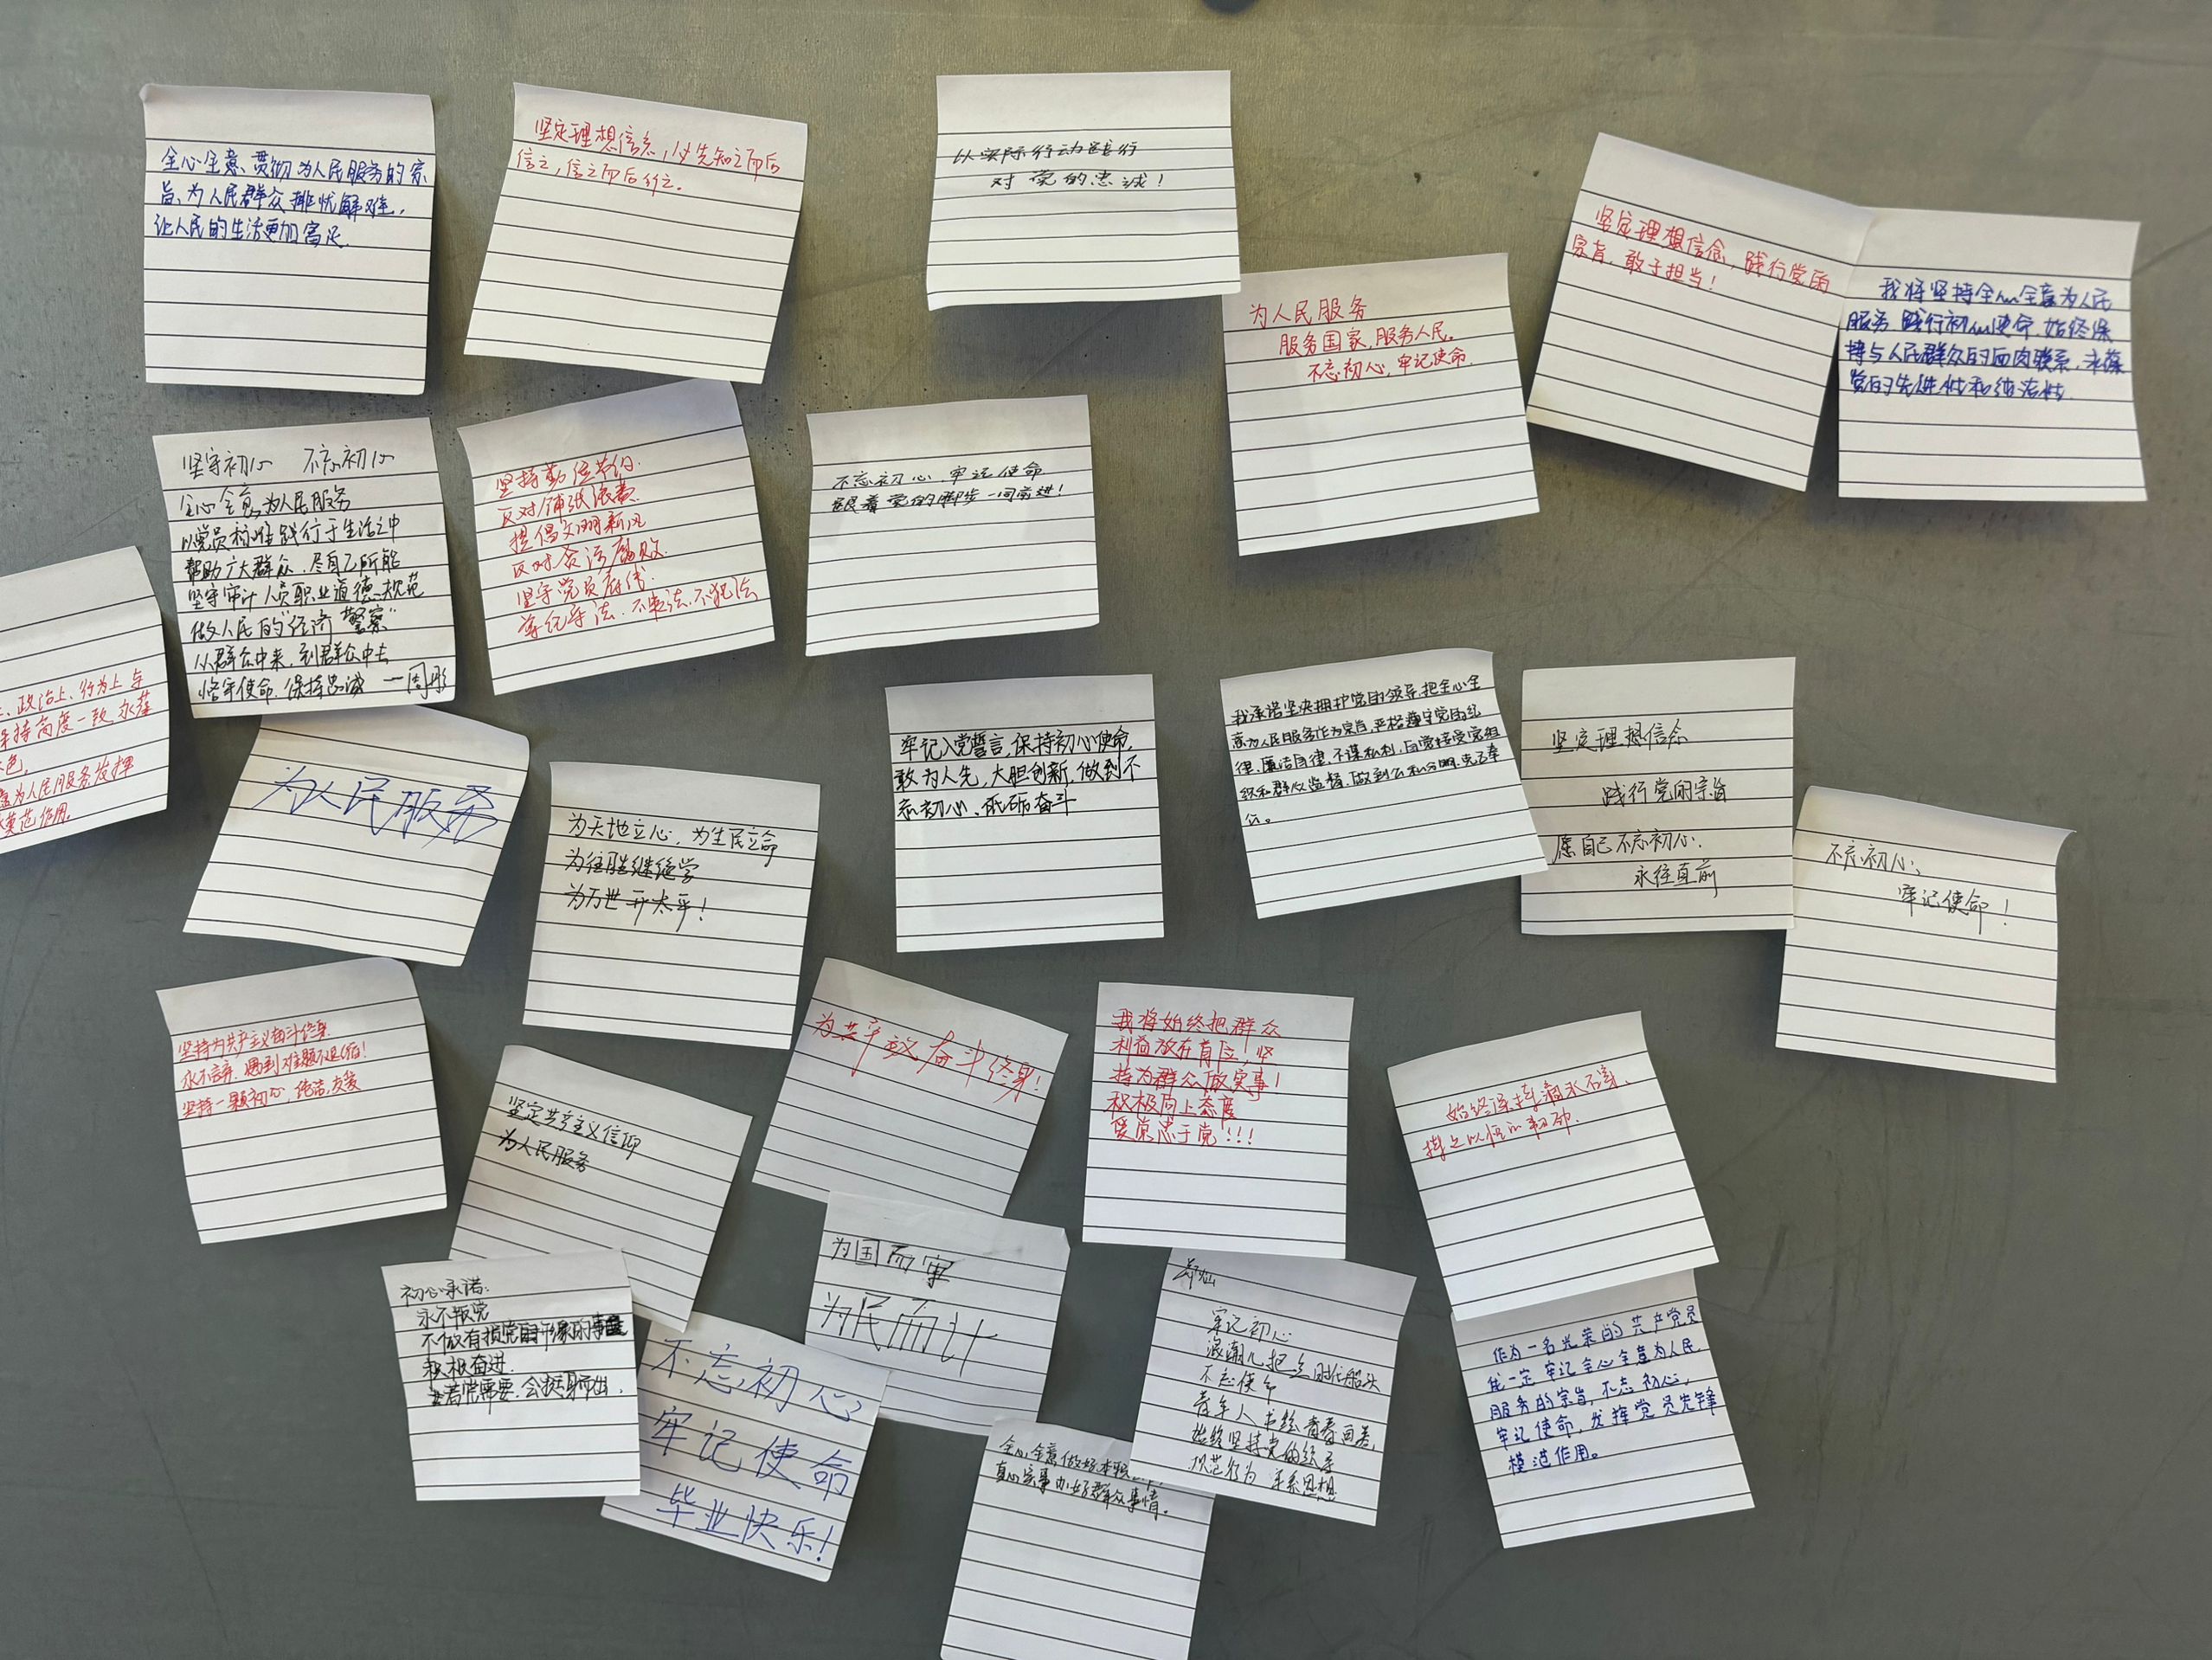 全心全意、贯彻为人民服务的宗
旨、为人民群众排忧解难，
让人民的生活更加富足.
坚定理想信念，必先知之而后
信之，信之而后行之。
以实际行动践行
对党的忠诚！
为人民服务
服务国家.服务人民。
不忘初心,牢记使命.
坚定理想信念，践行党的
宗旨，敢于担当！
我将坚持全心全意为人民
服务 践行初心使命.始终保
持与人民群众的血肉联系，永葆
党的先进性和纯洁性.
坚守初心 不忘初心
全心全意为人民服务
以党员标准践行于生活之中
帮助广大群众.尽自己所能
坚守审计人员职业道德规范
做人民的“经济警察”
从群众中来.到群众中去
恪牢使命.保持忠诚 —周彤
坚持勤俭节约.
反对铺张浪费.
提倡文明新风
反对贪污腐败.
坚守党员底线.
遵纪守法.不乱法.不犯法
不忘初心 牢记使命
跟着党的脚步一同前进！
、政治上、行为上与
保持高度一致,永葆
色,
为人民服务,发挥
模范作用.
为人民服务
为天地立心，为生民立命
为往胜继绝学
为万世开太平！
牢记入党誓言,保持初心使命,
敢为人先,大胆创新,做到不
忘初心、砥砺奋斗
我承诺坚决拥护党的领导,把全心全
意为人民服务作为宗旨,严格遵守党的纪
律,廉洁自律,不谋私利,自觉接受党组
织和群众监督,做到公私分明.克己奉
公。
坚定理想信念
践行党的宗旨
愿自己不忘初心.
永往直前
不忘初心,
牢记使命！
坚持为共产主义奋斗终身.
永不言弃.遇到难题不退缩！
坚持一颗初心，纯洁,友爱
坚定共产主义信仰
为人民服务
为共产主义奋斗终身！
我将始终把群众
利益放在首位！坚
持为群众做实事！
积极向上态度
爱党忠于党！！！
始终保持滴水石穿、
持之以恒的韧劲.
初心承诺:
永不叛党
不做有损党的形象的事
积极奋进.
若党需要,会挺身而出.
不忘初心
牢记使命
毕业快乐！
为国而审
为民而计
牢记初心
浪潮儿把立时代船头
不忘使命
青年人书绘青春画卷,
始终坚持党的纪律
规范行为
全心全意做好本职
真心实事办好群众事情。
作为一名光荣的共产党员
我一定牢记全心全意为人民
服务的宗旨，不忘初心，
牢记使命，发挥党员先锋
模范作用。